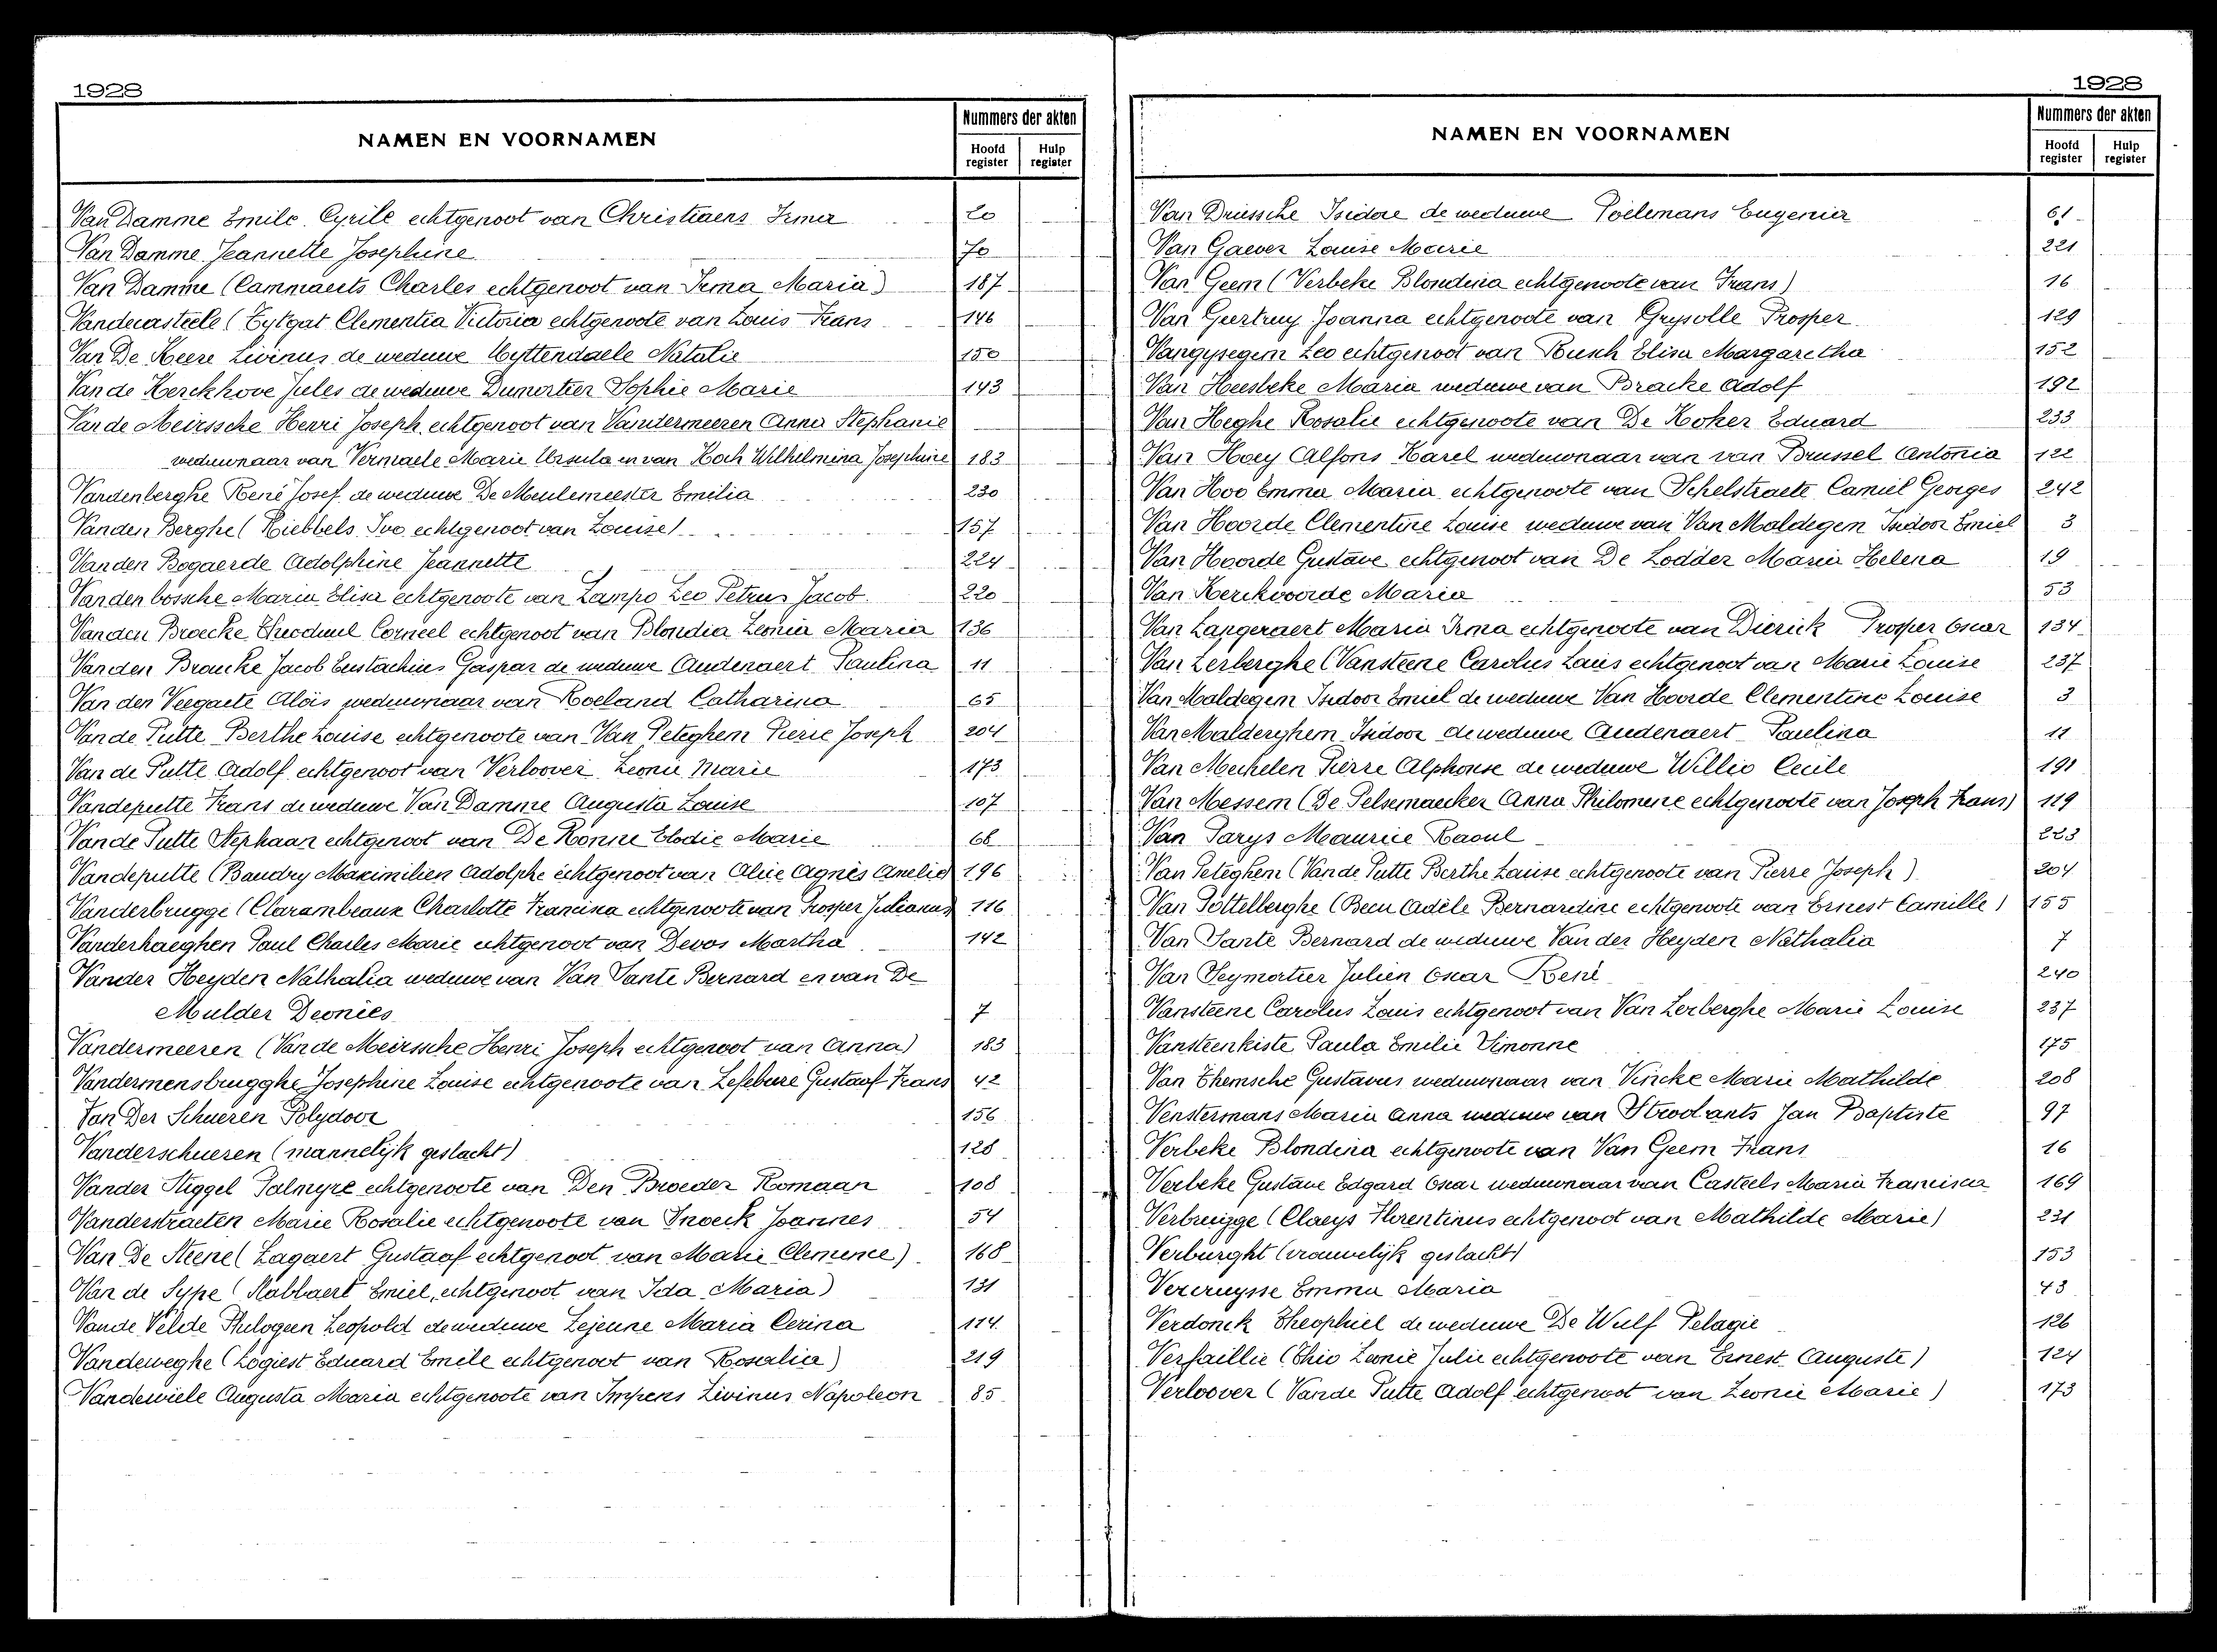 1928
NAMEN EN VOORNAMEN
Nummers der akten
Hoofd register
Hulp register
Van Damme Emile Cyrile echtgenoot van Christiaens Irma 20
Van Damme Jeannette Josephine 70
Van Damme (Cammaerts Charles echtgenoot van Irma Maria) 187
Vandecasteele (Eytgat Clementia Victoria echtgenoote van Louis Frans 146
Van De Keere Livinus de weduwe Uyttendaele Natalie 150
Van de Kerckhove Jules de weduwe Dumortier Sophie Marie 143
Van de Meirssche Henri Joseph echtgenoot van Vandermeeren Anna Stephanie
weduwnaar van Vermaele Marie Ursula en van Koch Wilhelmina Josephine 183
Vandenberghe René Josef de weduwe De Meulemeester Emilia 230
Vanden Berghe (Ribbels Ivo echtgenoot van Louise) 157
Van den Bogaerde Adolphine Jeannette 224
Vanden bossche Maria Elisa echtgenoote van Lampo Leo Petrus Jacob 220
Vanden Broecke Theoduul Corneel echtgenoot van Blondia Leonia Maria 136
Vanden Broucke Jacob Eustachius Gaspar de weduwe Audenaert Paulina 11
Van den Veegaete Aloïs weduwnaar van Roeland Catharina 65
Van de Putte Berthe Louise echtgenoote van Van Peteghem Pierre Joseph 204
Van de Putte Adolf echtgenoot van Verloover Leonie Marie 173
Vandeputte Frans de weduwe Van Damme Augusta Louise 107
Van de Putte Stephaan echtgenoot van De Konne Elodie Marie 68
Vandeputte (Baudry Maximilien Adolphe echtgenoot van Alice Agnès Amelie) 196
Vanderbrugge (Clarambeaux Charlotte Francina echtgenoote van Prosper Julianus) 116
Vanderhaeghen Paul Charles Marie echtgenoot van Devos Martha 142
Vander Heyden Nathalia weduwe van Van Sante Bernard en van De
Mulder Deonies 7
Vandermeeren (Van de Meirssche Henri Joseph echtgenoot van Anna) 183
Vandermensbrugghe Josephine Louise echtgenoote van Lefebure Gustaaf Frans 42
Van Der Schueren Polydoor 156
Vanderschueren (mannelijk geslacht) 128
Vander Stiggel Palmyre echtgenoote van Den Broeder Romaan 108
Vanderstraeten Marie Rosalie echtgenoote van Snoeck Joannes 54
Van De Steene (Lagaert Gustaaf echtgenoot van Marie Clemence) 168
Van de Sype (Stabbaert Emiel echtgenoot van Ida Maria) 131
Van de Velde Philogeen Leopold de weduwe Lejeune Maria Cerina 114
Vandeweghe (Logiest Eduard Emile echtgenoot van Rosalia) 219
Vandewiele Augusta Maria echtgenoote van Impens Livinus Napoleon 85
1928
NAMEN EN VOORNAMEN
Nummers der akten
Hoofd register
Hulp register
Van Driessche Isidore de weduwe Poelemans Eugenia 61
Van Gaever Louise Marie 221
Van Geem (Verbeke Blondina echtgenoote van Frans) 16
Van Geertruy Joanna echtgenoote van Grysolle Prosper 129
Vangysegem Leo echtgenoot van Busch Elisa Margaretha 152
Van Heesbeke Maria weduwe van Bracke Adolf 192
Van Heghe Rosalie echtgenoote van De Koker Eduard 233
Van Hoey Alfons Karel weduwnaar van van Brussel Antonia 122
Van Hoo Emma Maria echtgenoote van Schelstraete Camiel Georges 242
Van Hoorde Clementine Louise weduwe van Van Maldegem Isidoor Emiel 3
Van Hoorde Gustave echtgenoot van De Lodder Maria Helena 19
Van Kerckvoorde Maria 53
Van Langeraert Maria Irma echtgenoote van Dierick Prosper Oscar 134
Van Lerberghe (Vansteene Carolus Louis echtgenoot van Marie Louise 237
Van Maldegem Isidoor Emiel de weduwe Van Hoorde Clementine Louise 3
Van Malderghem Isidoor de weduwe Audenaert Paulina 11
Van Mechelen Pierre Alphonse de weduwe Willio Cecile 191
Van Messem (De Pelsemaecker Anna Philomene echtgenoote van Joseph Frans) 119
Van Parys Maurice Raoul 223
Van Peteghem (Van de Putte Berthe Louise echtgenoote van Pierre Joseph) 204
Van Pottelberghe (Becu Adèle Bernardine echtgenoote van Ernest Camille) 155
Van Sante Bernard de weduwe Van der Heyden Nathalia 7
Van Seymortier Julien Oscar René 240
Vansteene Carolus Louis echtgenoot van Van Lerberghe Marie Louise 237
Vansteenkiste Paula Emilie Simonne 175
Van Themsche Gustavus weduwnaar van Vincke Marie Mathilde 208
Venstermans Maria Anna weduwe van Strodants Jan Baptiste 97
Verbeke Blondina echtgenoote van Van Geem Frans 16
Verbeke Gustave Edgard Oscar weduwnaar van Casteels Maria Francisca 169
Verbrugge (Claeys Florentinus echtgenoot van Mathilde Marie) 231
Verburght (vrouwelijk geslacht) 153
Vercruysse Emma Maria 43
Verdonck Theophiel de weduwe De Wulf Pelagie 126
Verfaillie (Thio Leonie Julie echtgenoote van Ernest Auguste) 124
Verloover (Van de Putte Adolf echtgenoot van Leonie Marie) 173